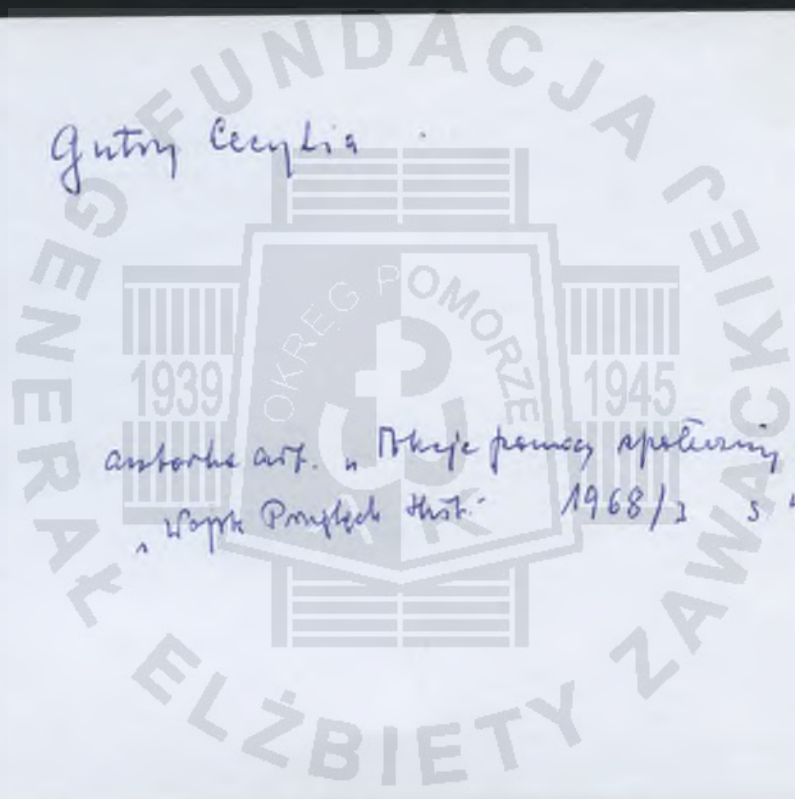 Gutry Cecylia
autorka art. „Akcje pomocy społecznej
„Wojsk Przegląd Hist." 1968/3 s
FUNDACJA
GENERAŁ ELŻBIETY ZAWACKIEJ
OKRĘG POMORZE
1939
1945
AK